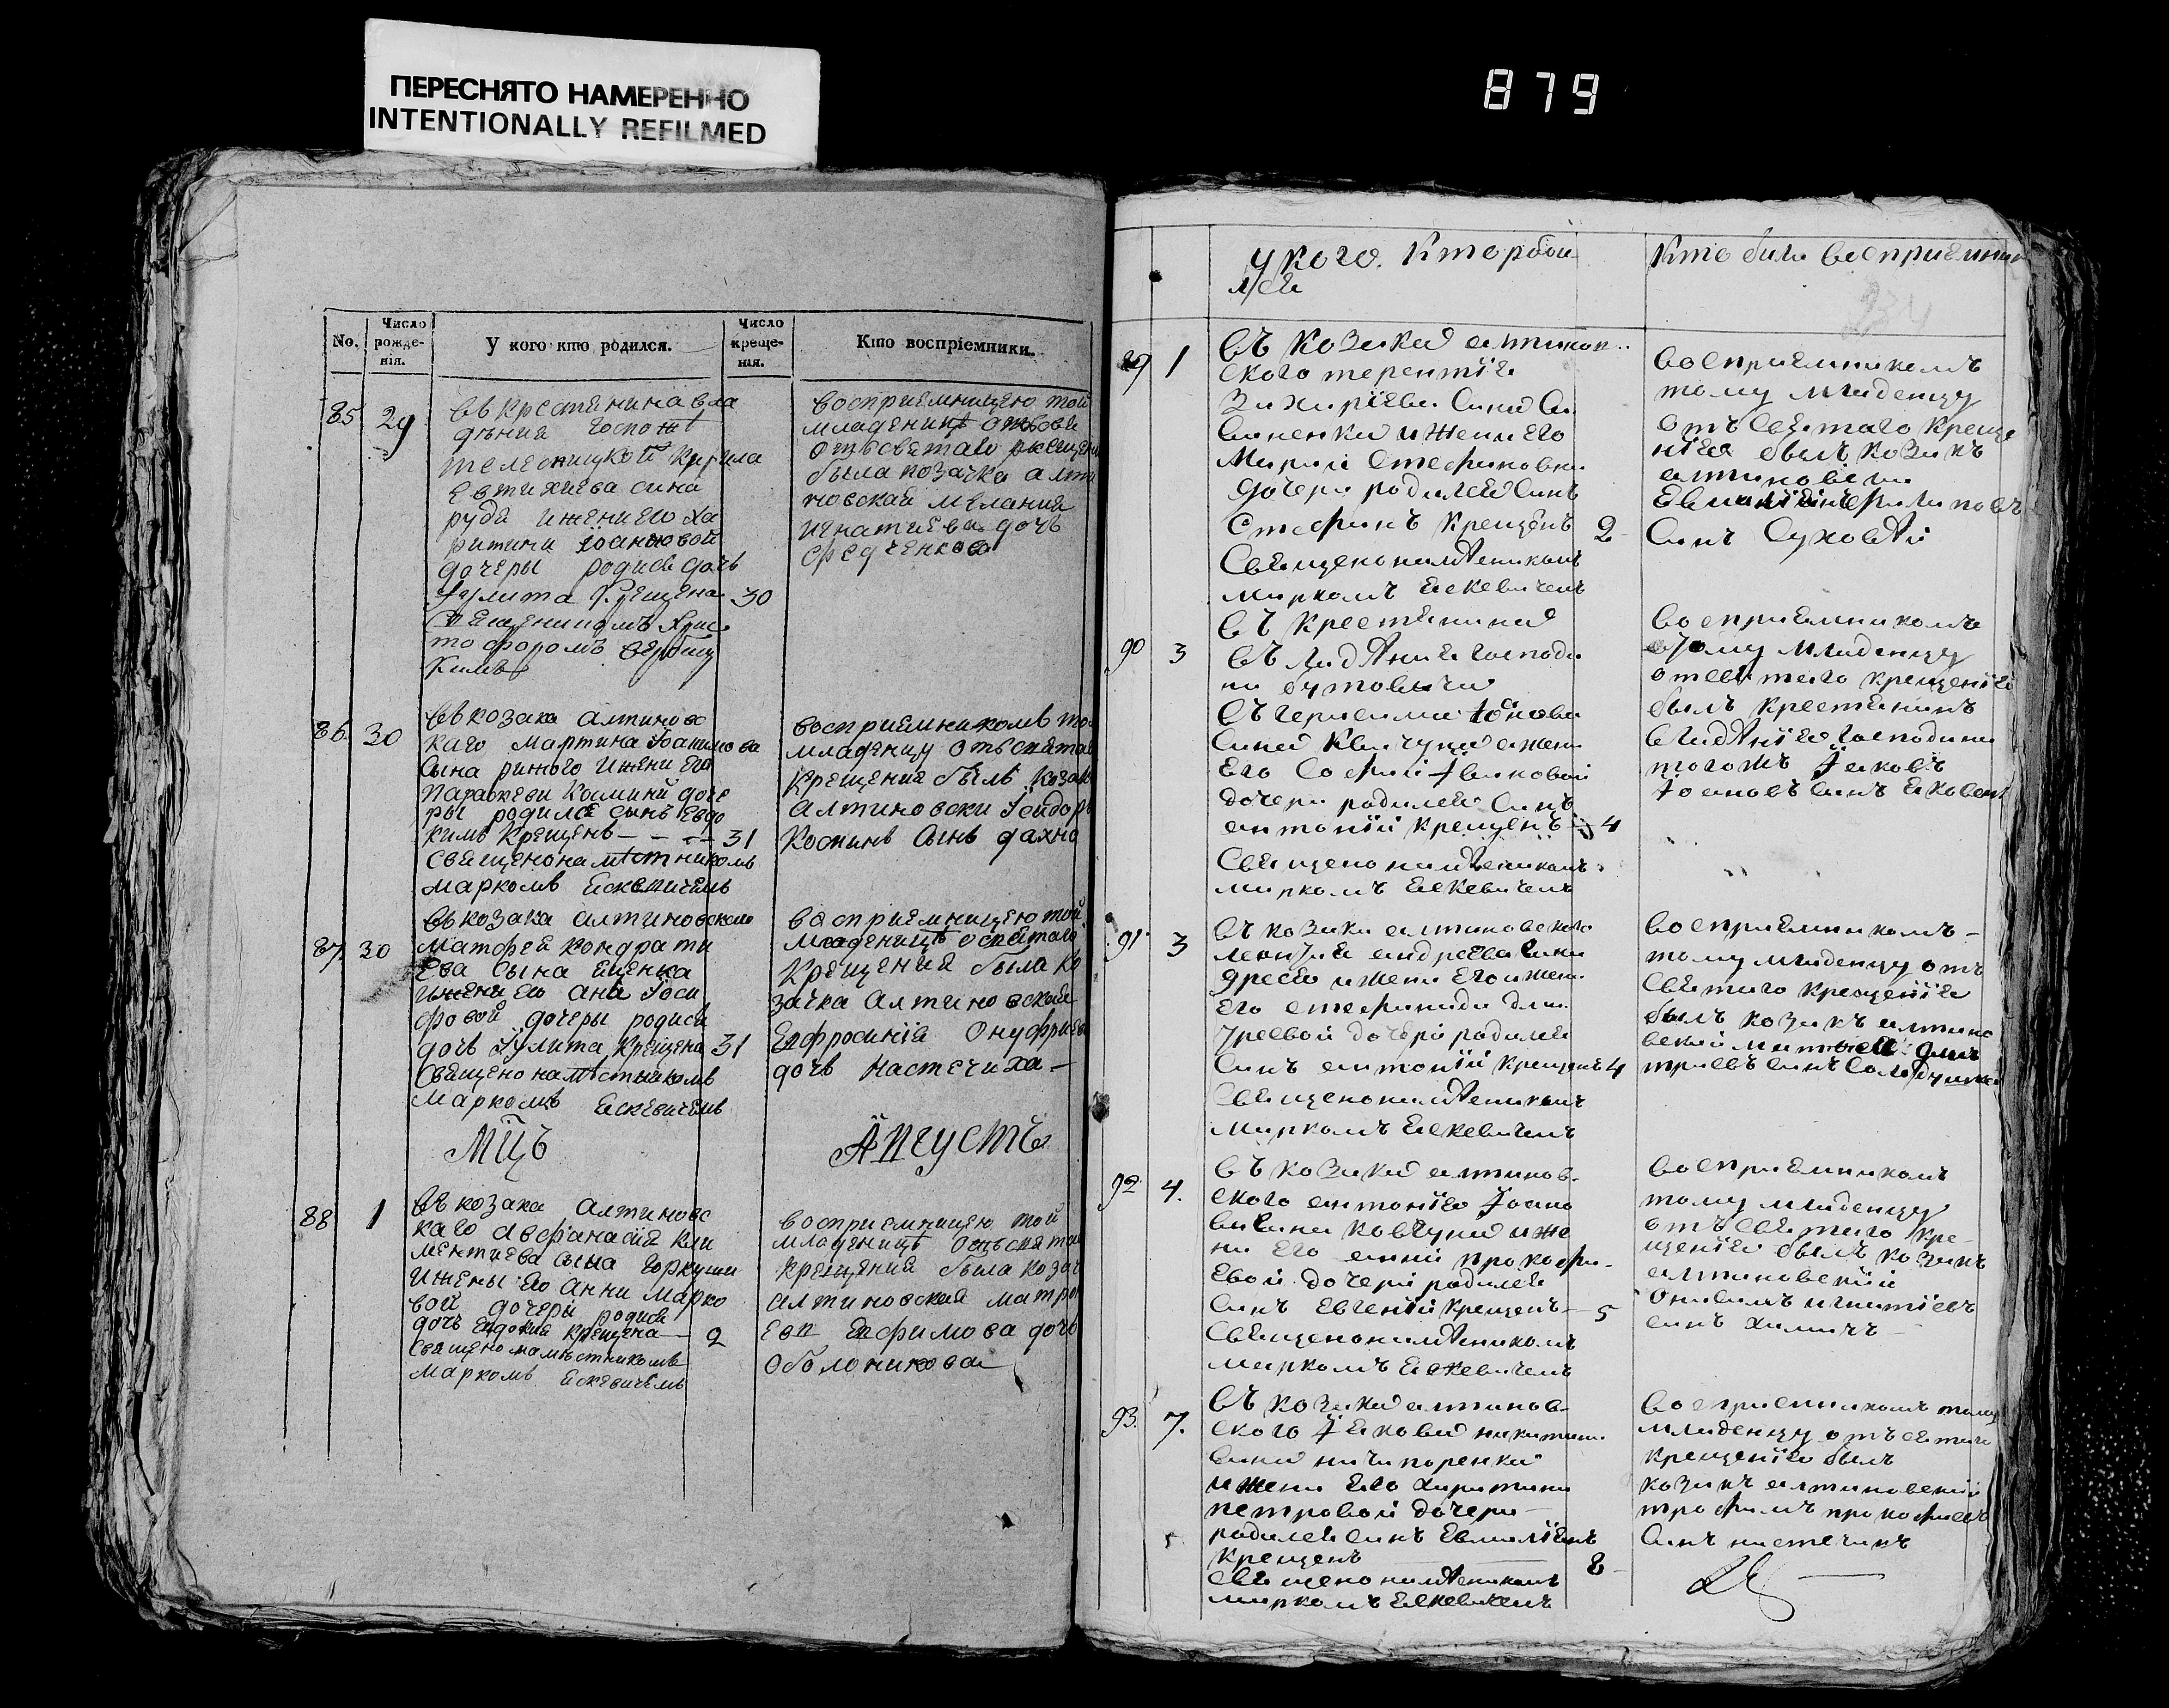 ПЕРЕСНЯТО НАМЕРЕННО
INTENTIONALLY REFILMED
879
No.
Число рожде-нія.
У кого кто родился.
Число креще-нія.
Кто воспріемники.
85
29
въ крестянина вла
дѣния госпожѣ
телесницкой Кирила
Евтихиева сина
руда иженнего Ха
ритини
дочеры родися дочъ
Iулита Крещена 30
Хрис
тофоромъ
воспри­емницею той
младеницѣ
была козачка алти
новская мелания
игнатиева дочъ
Федченкова
86
30
въ козака алтиновс
каго мартина Iоакимова
сына рижого Ижени Его
параскеви Косминй доче
ры родился синъ Евдо
кимъ Крещенъ - - - 31
Священонамѣстникомъ
маркомъ Ескевичемъ
восприемникомъ то
младенцу отъ святаго
Крещения былъ Козакъ
алтиновски Iсидоръ
Косминъ сынъ дахно
87
30
въ козака алтиновскаго
матфея кондрати
ева сына Еценка
ижени его анни Iоси
фовой дочеры родися
дочъ Iулита Крещена 31
Священонамѣстникомъ
Маркомъ Ескевичемъ
восприемницею той
младеницѣ
Крещения была Ко
зачка Алтиновская
Евфросиніа Онуфриева
дочъ настечиха -
Мцъ
Августъ
88
1
въ козака алтиновс
каго Афанасия кли
ментиева сына горкуши
ижены его анни Марко
вой дочери родися
дочъ Евдокия крещена - 2
Священонамѣстникомъ
маркомъ Ескевичемъ
восприемницею той
младеницѣ отъ свята
крещения была козач
алтиновская матро
Ефимова дочъ
Оболоникова
у кого. Кто роди
лся
Кто били восприемник
234
89
1
въ козака алтинов
ского терентія
Захаріева сина
ижени Его
Марии Стефановни
дочери родился синъ
Стефанъ крещенъ 2
Священонамѣстникомъ
маркомъ Ескевичемъ
восприемникомъ
тому младенцу
отъ святаго креще
нія былъ козакъ
алтиновски
филиповъ
синъ Суховѣй
90
3
въ крестянина
владѣния господи
на
въ герасима
сина ижени
Его Софии Iвановой
дочери родился синъ
антоній крещенъ - 4
Священонамѣстникомъ
маркомъ Ескевичемъ
восприемникомъ
тому младенцу
от святаго крещенія
былъ крестянинъ
владѣнія господина
тогожъ Iаковъ
синъ
91
3
въ козака алтиновского
леонтия андреева сина
ижени Его ижени
Его стефаниди дми
триевой дочери родился
синъ антоній крещенъ 4
Священонамѣстникомъ
маркомъ Ескевичемъ
восприемникомъ -
тому младенцу отъ
святаго крещенія
былъ козакъ алтинов
ский дми
триевъ синъ
92
4.
въ козака алтинов-
ского антонія Iоано
ва сина ковтуна иже
ни Его анни прокофи-
евой дочери родился
синъ Евгеній крещенъ - 5
Священонамѣстникомъ
маркомъ Ескевичемъ
восприемникомъ
тому младенцу
отъ святаго кре-
щенія былъ козакъ
алтиновскій
игнатіевъ
синъ
93.
7.
въ козака алтинов-
ского Iакова никитина
сина ничипоренка
ижени Его харитини
петровой дочери -
родился синъ Евмпліянъ
крещенъ 8
Священонамѣстникомъ
маркомъ Ескевичемъ
восприемникомъ тому
младенцу отъ святаго
крещенія былъ
козакъ алтиновскій
трофимъ прокофиевъ
синъ настечинъ